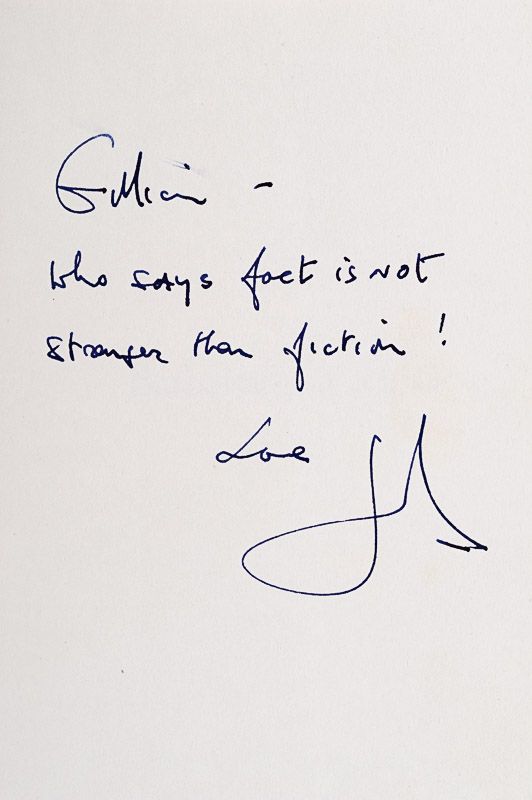 Gillian -
Who says fact is not
stranger than fiction!
Love